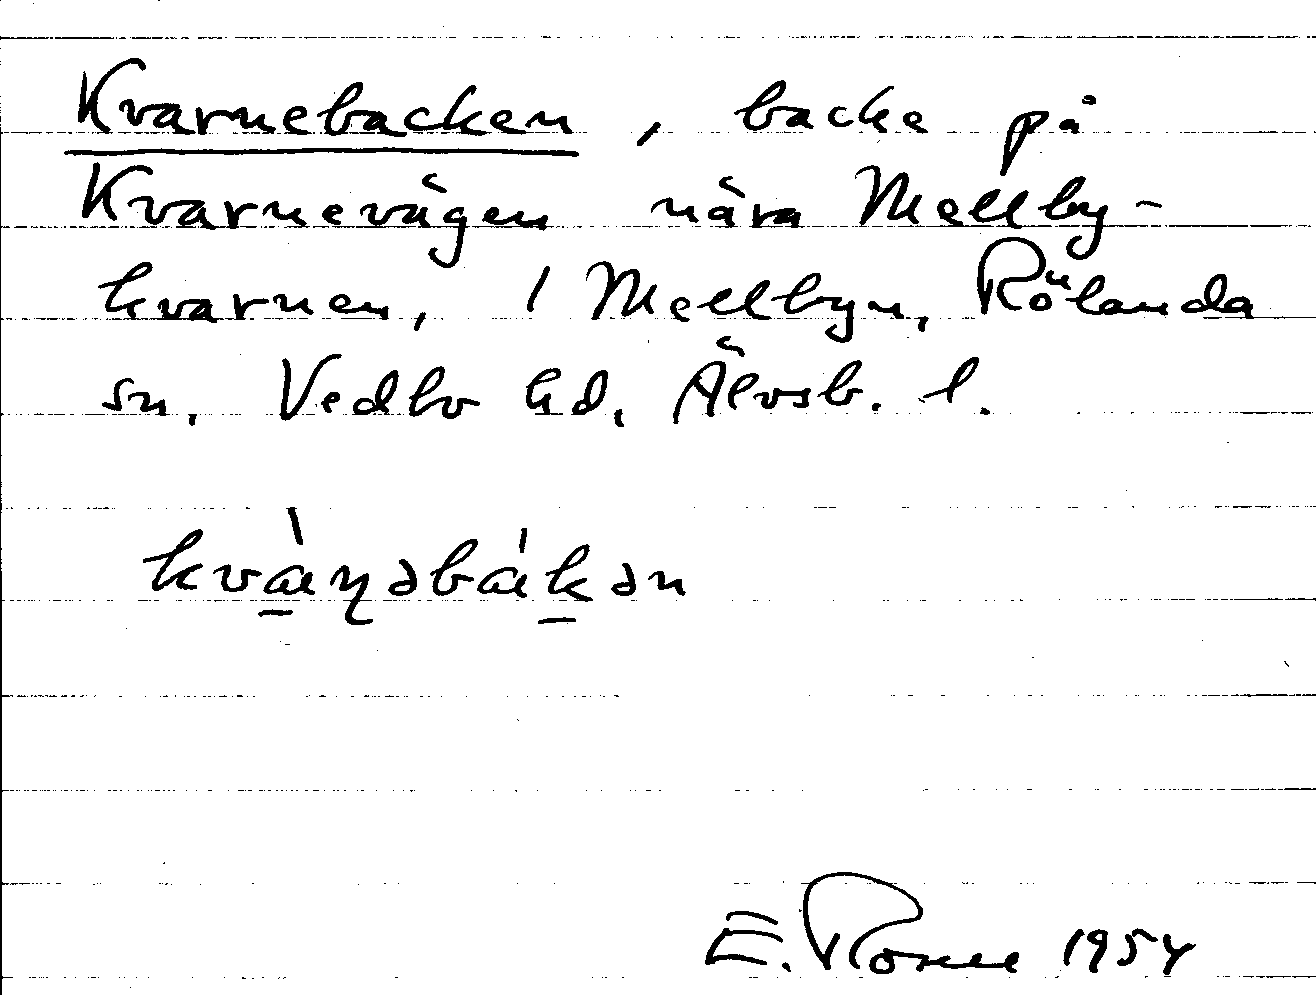 Kvarnebacken, backe på
Kvarnevägen nära Mellby-
kvarnen, 1 Mellbyn, Rölanda
sn, Vedbo hd, Älvsb. l.
kvàɳəbák̠ən
E. Rosell 1954